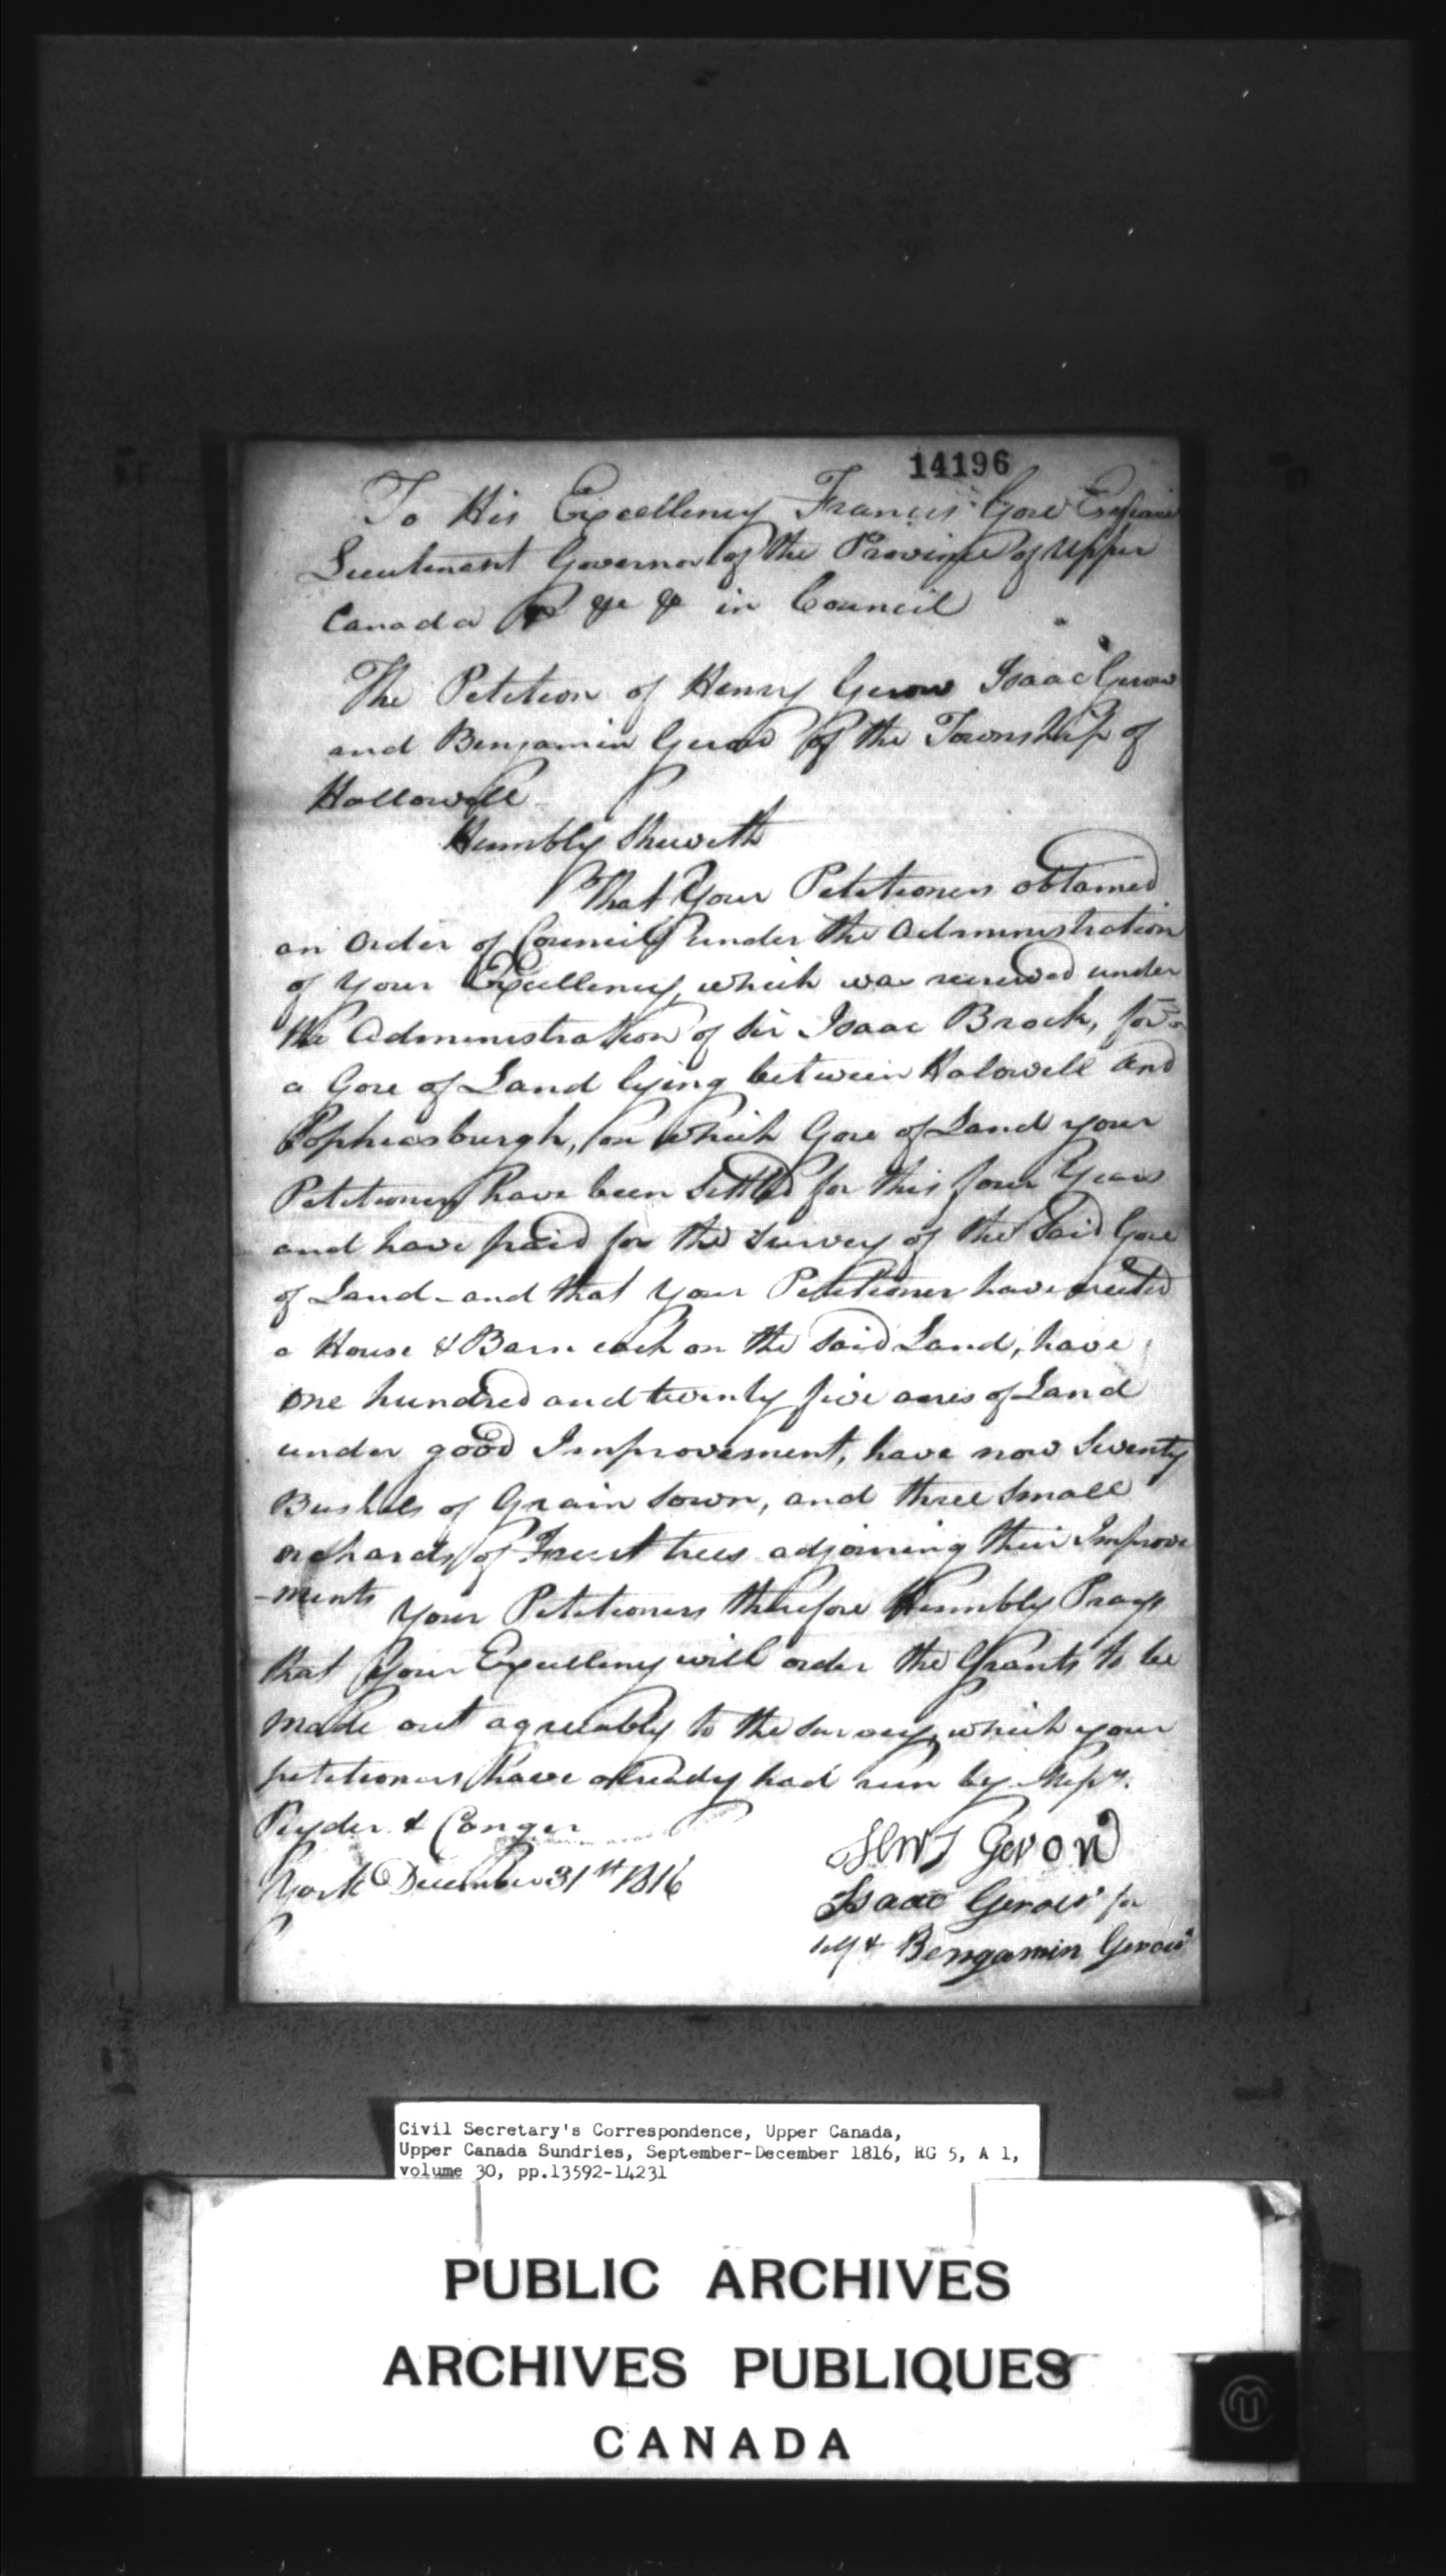 14196
To His Excellency Francis Gore Esquire
Lieutenant Governor of the Province of Upper
Canada &c &c in Council
The Petition of Henry Gerow Isaac Gerow
and Benjamin Gerow of the Township of
Hallowell
Humbly Sheweth
That Your Petitioners obtained
an Order of Council under the Administration
of Your Excellency, which was renewed under
the Administration of Sir Isaac Brock, for
a Gore of Land lying between Halowell and
Sophiasburgh, on which Gore of Land your
Petitioners have been Settled for this four Years
and have paid for the Survey of the Said Gore
of Land - and that Your Petitioner have erected
a House & Barn each on the Said Land, have
One hundred and twenty five acres of Land
under good Improvement, have now Seventy
Bushels of Grain Sown, and three Small
orchards of Fruit trees adjoining their Improve
-ments
Your Petitioners therefore Humbly Prays
that Your Excellency will order the Grants to be
made out agreeably to the Survey, which your
petitioners have already had run by Messrs.
Ryder & Conger
York December 31st 1816
Gerow
Isaac Gerow for
self & Bengamin Gerow
Civil Secretary's Correspondence, Upper Canada,
Upper Canada Sundries, September-December 1816, RG 5, A 1,
volume 30, pp.13592-14231
PUBLIC ARCHIVES
ARCHIVES PUBLIQUES
CANADA